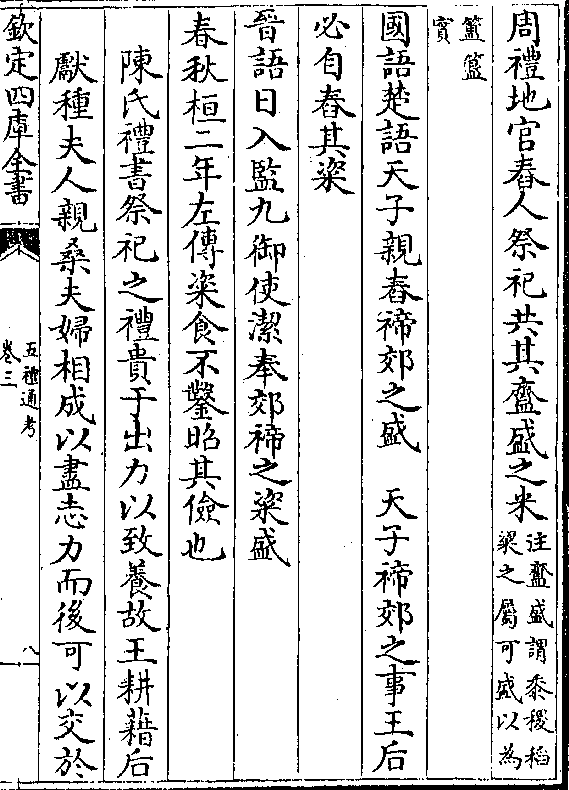 周禮地官舂人祭祀共其齍盛之米注齍盛謂黍稷稻粱之屬可盛以為
簠簋實
國語楚語天子親舂禘郊之盛　天子禘郊之事王后
必自舂其粢
晉語日入監九御使潔奉郊禘之粢盛
春秋桓二年左傳粢食不鑿昭其儉也
陳氏禮書祭祀之禮貴于出力以致養故王耕藉后
獻種夫人親桑夫婦相成以盡志力而後可以交於
欽定四庫全書
五禮通考
卷三
八